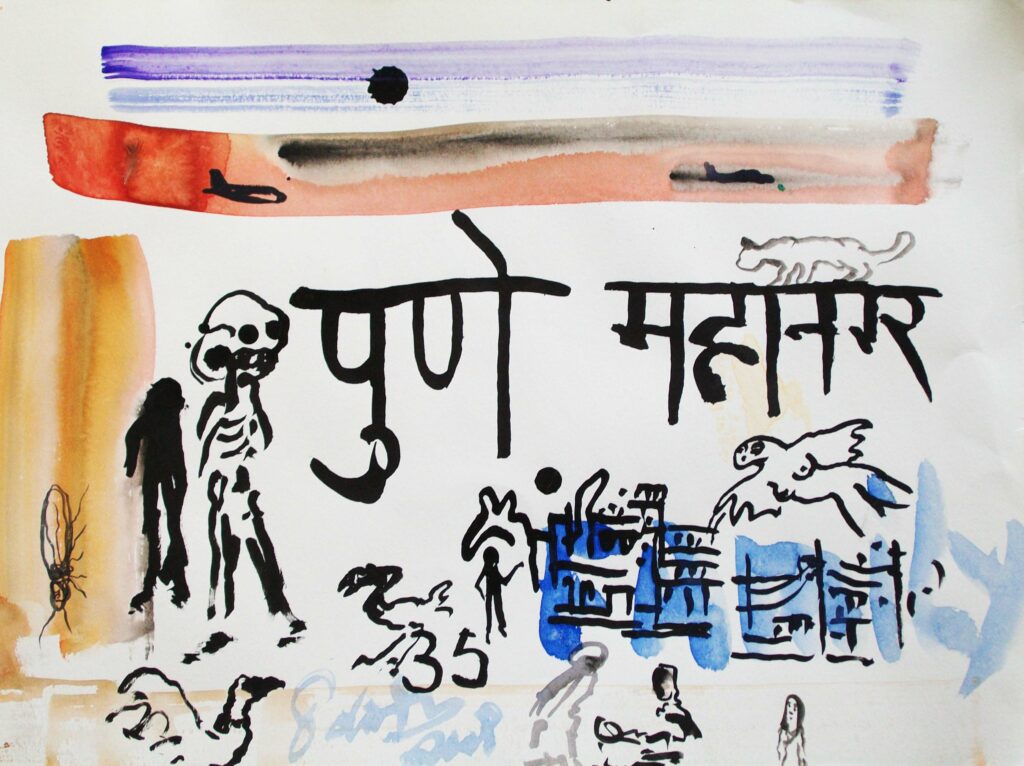 पुणे महानगर
35